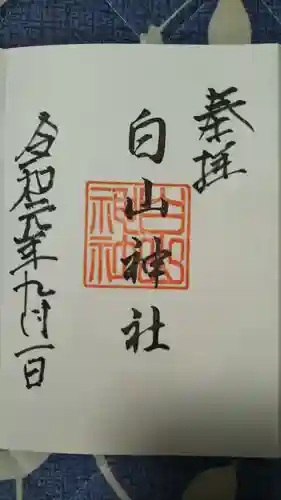 奉拝
白山神社
白山神社
令和元年九月一日